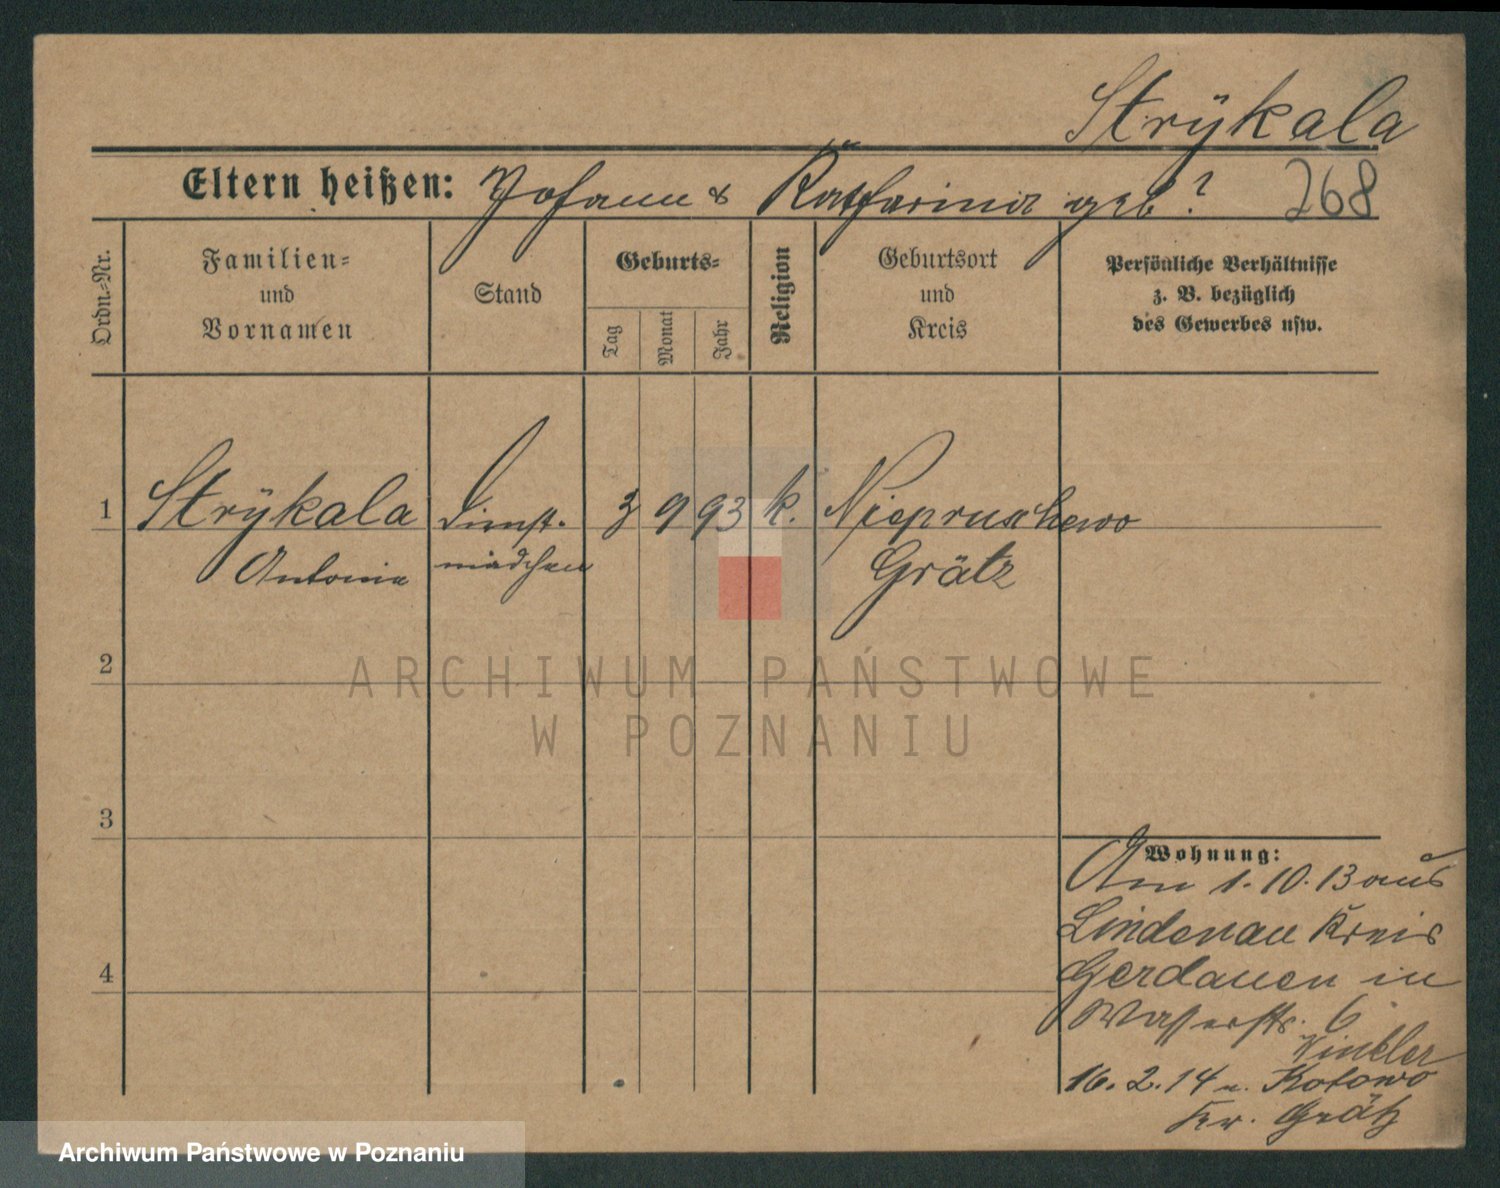 Strÿkala
Eltern heißen: Johann & Katharina geb ?
268
Ordn.-Nr.
Familien-
und
Vornamen
Stand
Geburts-
Tag
Monat
Jahr
Religion
Geburtsort
und
Kreis
Persönliche Verhältnisse
z. B. bezüglich
des Gewerbes usw.
1 Strÿkala Dienst- 3 9 93 k. Niepruschewo
Antonie mädchen Grätz
2
3
4
Wohnung:
Am 1. 10. 13 aus
Lindenau Kreis
Gerdauen in
Wasserstr. 6
Winkler
16. 2. 14 n. Kotowo
Kr. Grätz
ARCHIWUM PAŃSTWOWE
W POZNANIU
Archiwum Państwowe w Poznaniu